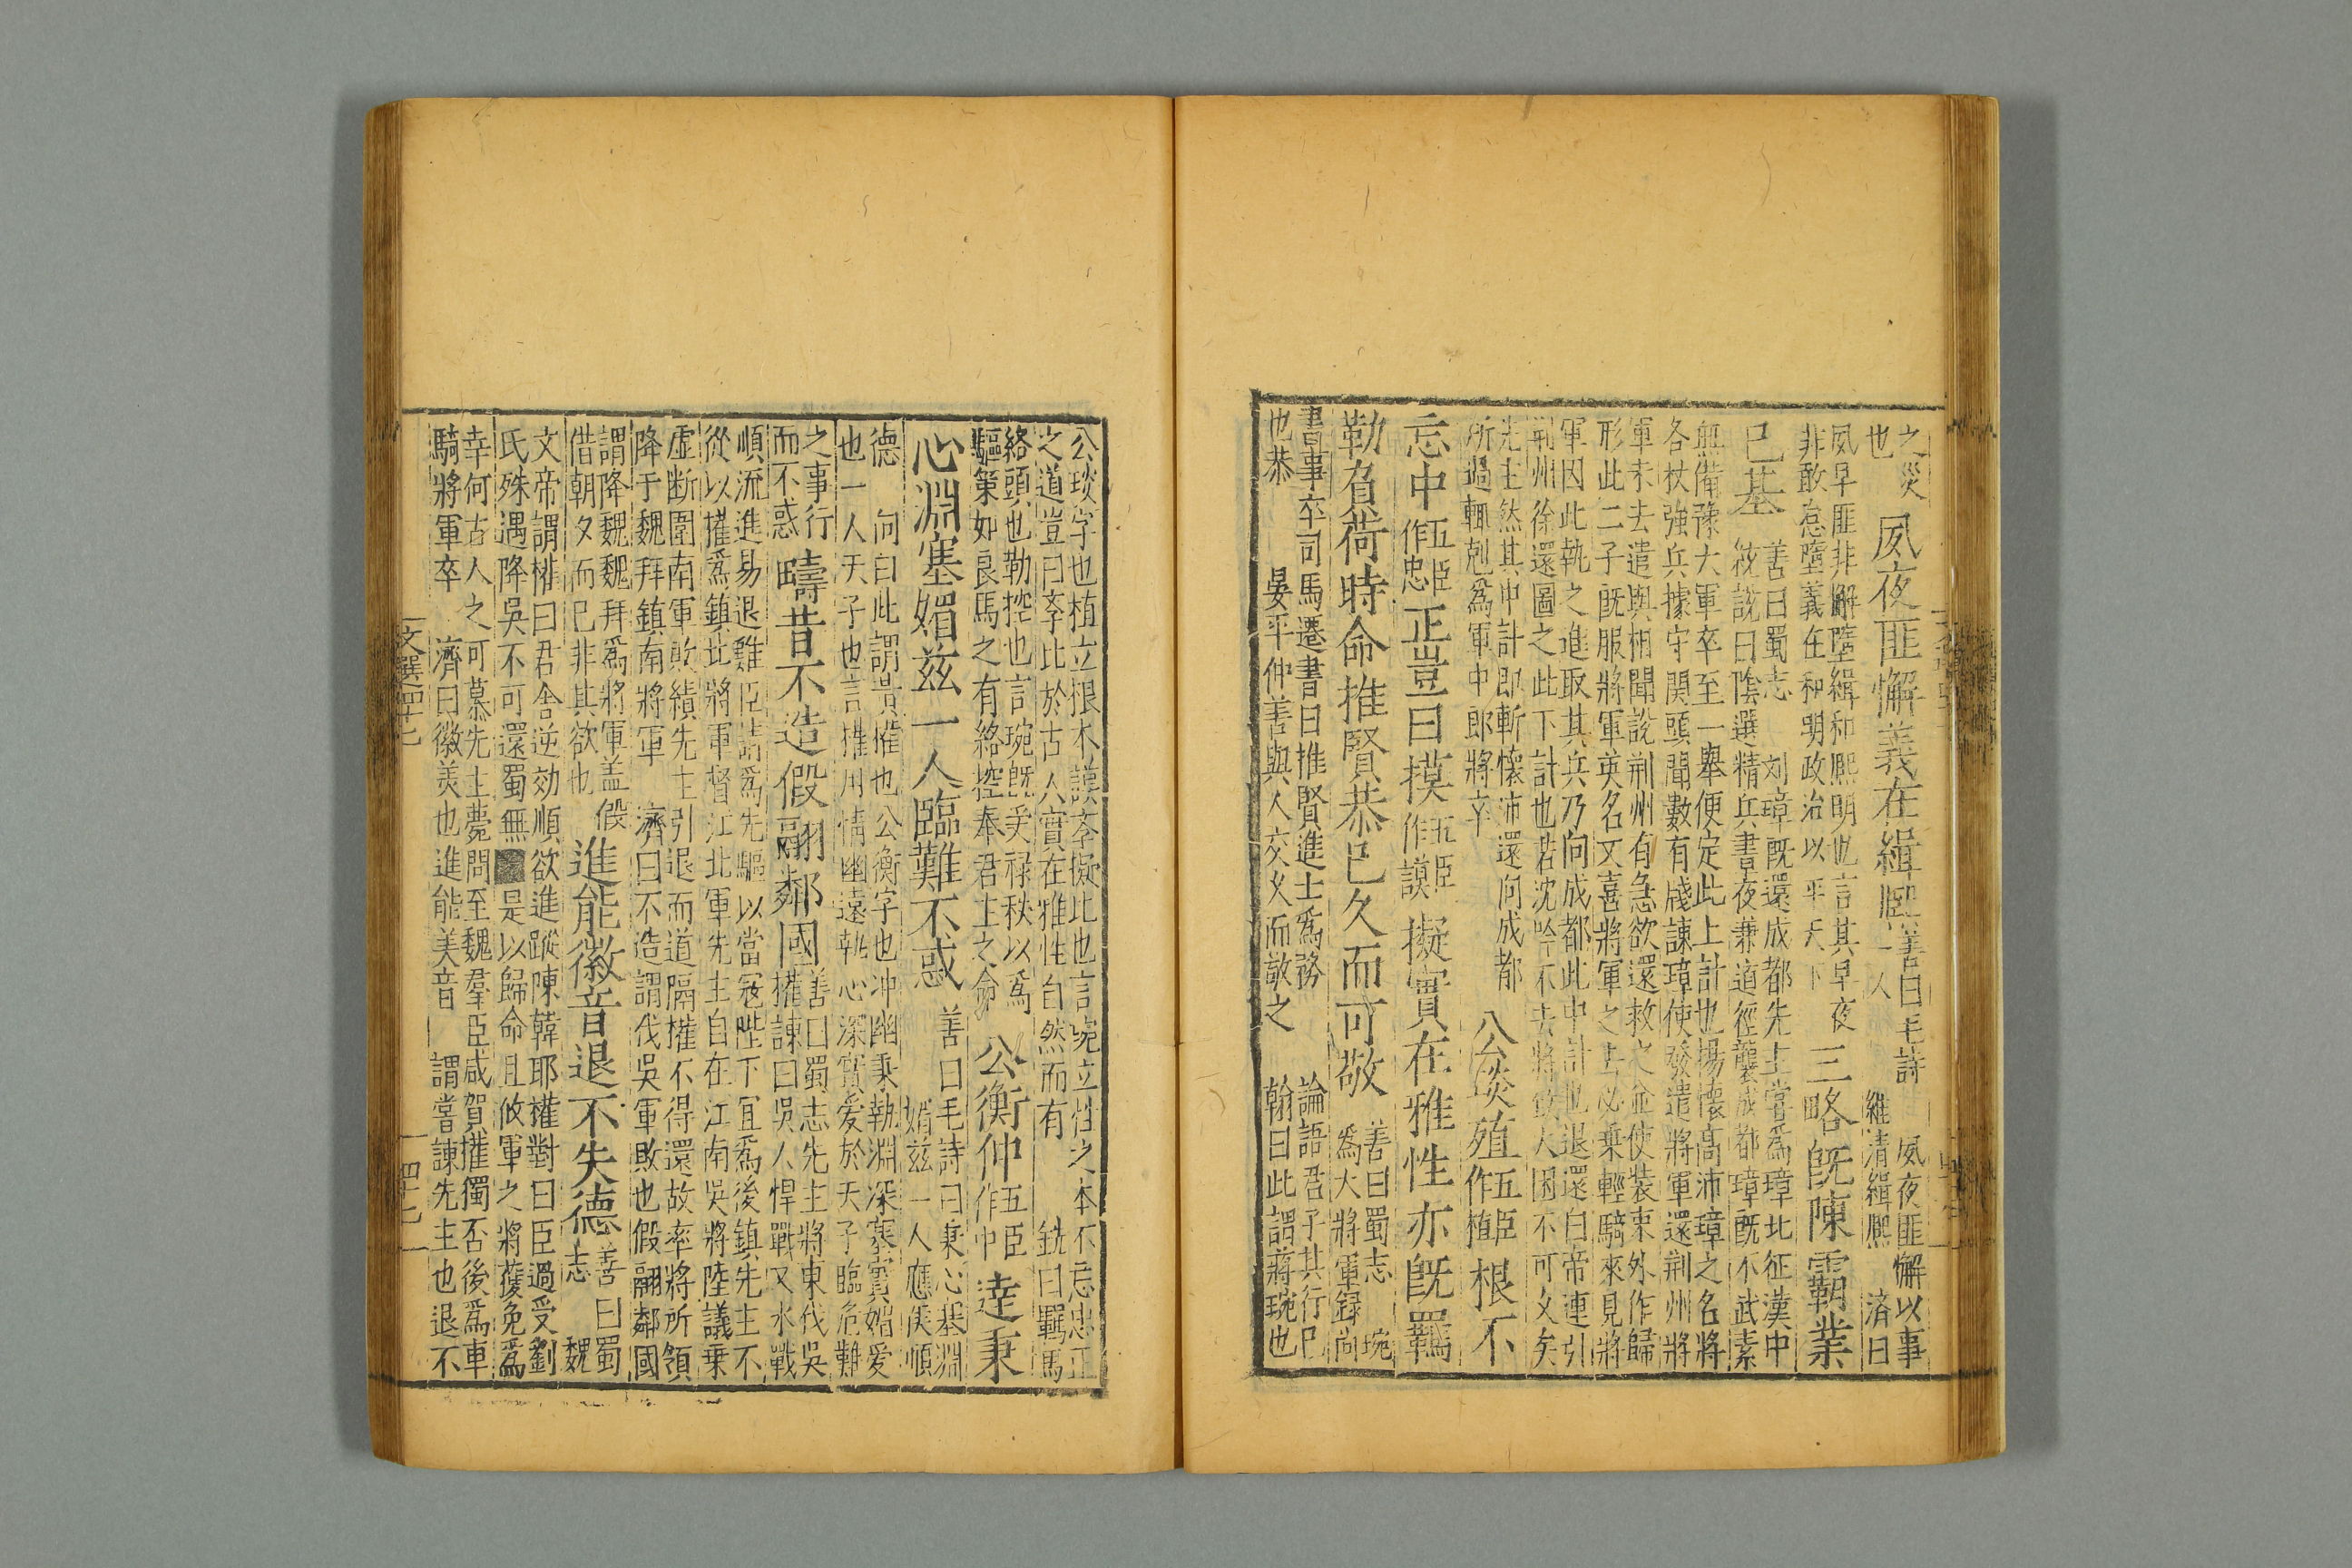 之災
也
夙夜匪懈義在緝熙
善曰毛詩
夙夜匪懈以事
一人
維清緝熙
濟曰
夙早匪非懈墮緝和熙明也言其早夜
非敢怠墮義在和明政治以平天下
三略既陳霸業
已基
善曰蜀志
刘璋既還成都先主當爲璋北征漢中
統說曰陰選精兵晝夜兼道徑襲成都璋既不武素
無備豫大軍卒至一舉便定此上計也揚懷高沛璋之名將
各杖強兵據守関頭聞數有牋諌璋使發遣將軍還荆州將
軍未去遣與相聞說荆州有急欲還救之並使装束外作歸
形此二子既服將軍英名又喜將軍之去必乗輕騎來見將
軍因此執之進取其兵乃向成都此中計也退還白帝連引
荆州徐還圖之此下計也若沈吟不去將致大困不可乆矣
先主然其中計即斬懷沛還向成都
所過輒剋爲軍中郎將卒
公琰殖
五臣
作植
根不
忘中
五臣
作忠
正豈曰摸
五臣
作謨
擬實在雅性亦既羈
勒負荷時命推賢恭已久而可敬
善曰蜀志
琬
爲大將軍録尚
書事卒司馬遷書曰推賢進士爲務
論語君子其行已
也恭
晏平仲善與人交乆而敬之
翰曰此謂蔣琬也
公琰字也植立根本謨夲擬比也言琬立性之本不忘忠正
之道豈曰夲此於古人實在雅性自然而有
銑曰羈馬
絡頭也勒控也言琬既受祿秩以爲
驅策如良馬之有絡控奉君主之命
公衡仲
五臣
作冲
逹秉
心淵塞媚兹一人臨難不惑
善曰毛詩曰秉心塞淵
媚兹一人應侯順
德
向曰此謂黄權也公衡字也冲幽秉執淵深塞實媚爱
也一人天子也言權用情幽遠執心深實爱於天子臨危難
之事行
而不惑
疇昔不造假翮鄰國
善曰蜀志先主將東伐吳
權諌曰吳人悍戰又水戰
順流進易退難臣請爲先驅以當寇陛下宜爲後鎮先主不
從以權爲鎮北將軍督江北軍先主自在江南吳將陸議乗
虛断圍南軍敗績先主引退而道隔權不得還故率將所領
降于魏拜鎮南將軍
濟曰不造謂伐吳軍敗也假翮鄰國
謂降魏魏拜爲將軍盖假
借朝夕而巳非其欲也
進能徽音退不失德
善曰蜀
志
魏
文帝謂權曰君舍逆効順欲進蹤陳韓耶權對曰臣過受劉
氏殊遇降吳不可還蜀無是以歸命且敗軍之將獲免爲
幸何古人之可慕先主薨問至魏羣臣咸賀權獨否後爲車
騎將軍卒
濟曰徽美也進能美音
謂當諌先主也退不
文選四十七
四十七